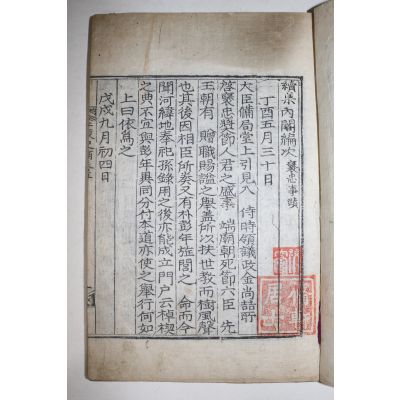 續集內閣編次 襃忠事蹟
丁酉五月三十日
大臣備局堂上引見入 侍時領議政金尚喆所
啓襃忠獎節人君之盛事 端廟朝死節六臣 先
王朝有 贈職賜諡之擧盖所以扶世敎而樹風聲
也其後因相臣所奏又有朴彭年旌閭之 命而今
聞河緯地奉祀孫錄用之後亦能成立門户云棹楔
之典不宜與彭年異同分付本道亦使之擧行何如
上曰依爲之
戊戌九月初四日